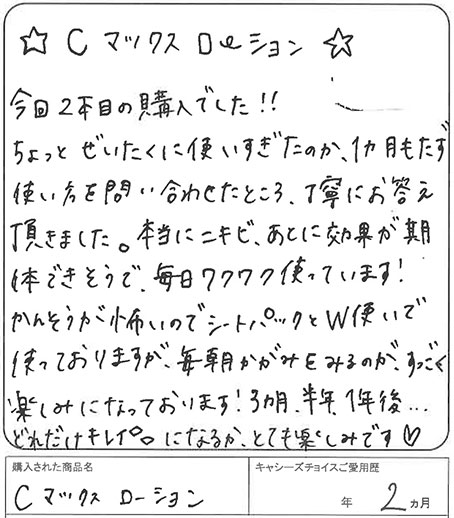 ☆ C マックス ローション ☆
今回2本目の購入でした!!
ちょっと ぜいたくに使いすぎたのか、1ヵ月もたず
使い方を問い合わせたところ、丁寧にお答え
頂きました。本当にニキビ、あとに効果が期
待できそうで、毎日ワクワク使っています!
かんそうが怖いのでシートパックとW使いで
使っておりますが、毎朝かがみをみるのが、すっごく
楽しみになっております!3ヵ月、半年、1年後…
どれだけキレイ になるか、とても楽しみです♡
購入された商品名
C マックス ローション
キャシーズチョイスご愛用歴
年 2 ヵ月